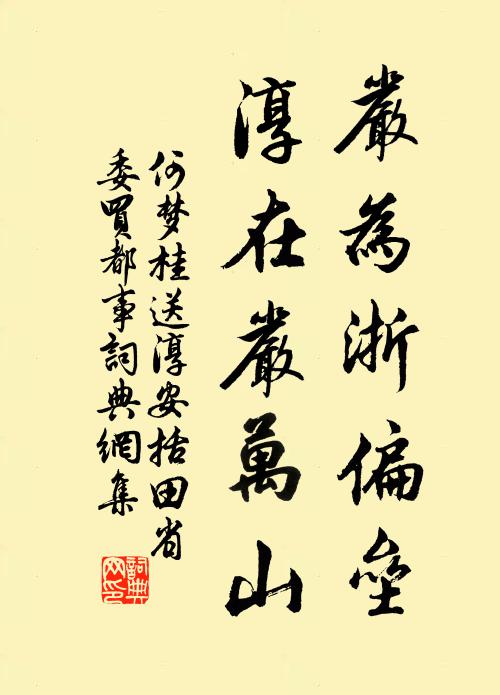 嚴為浙偏壘
淳在嚴萬山
何梦桂送淳安括田省
委買都事詞典網集
詞典网印